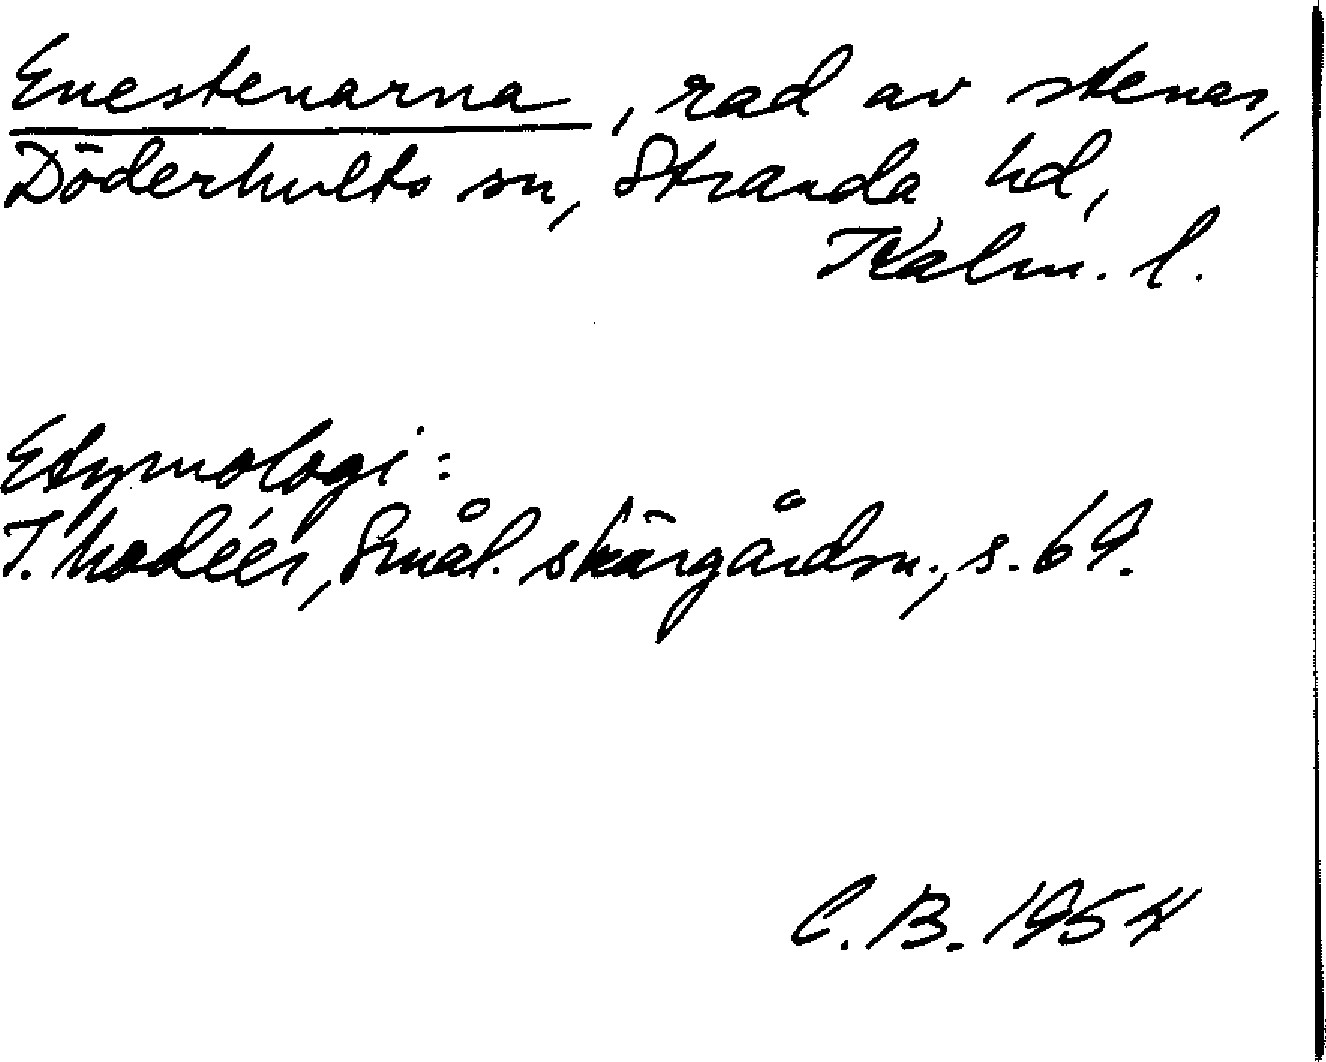 Enestenarna, rad av stenar,
Döderhults sn, Stranda hd,
Kalm. l.
Etymologi:
T. Modéer, Smål. skärgårdsn., s. 69.
C. B. 1954